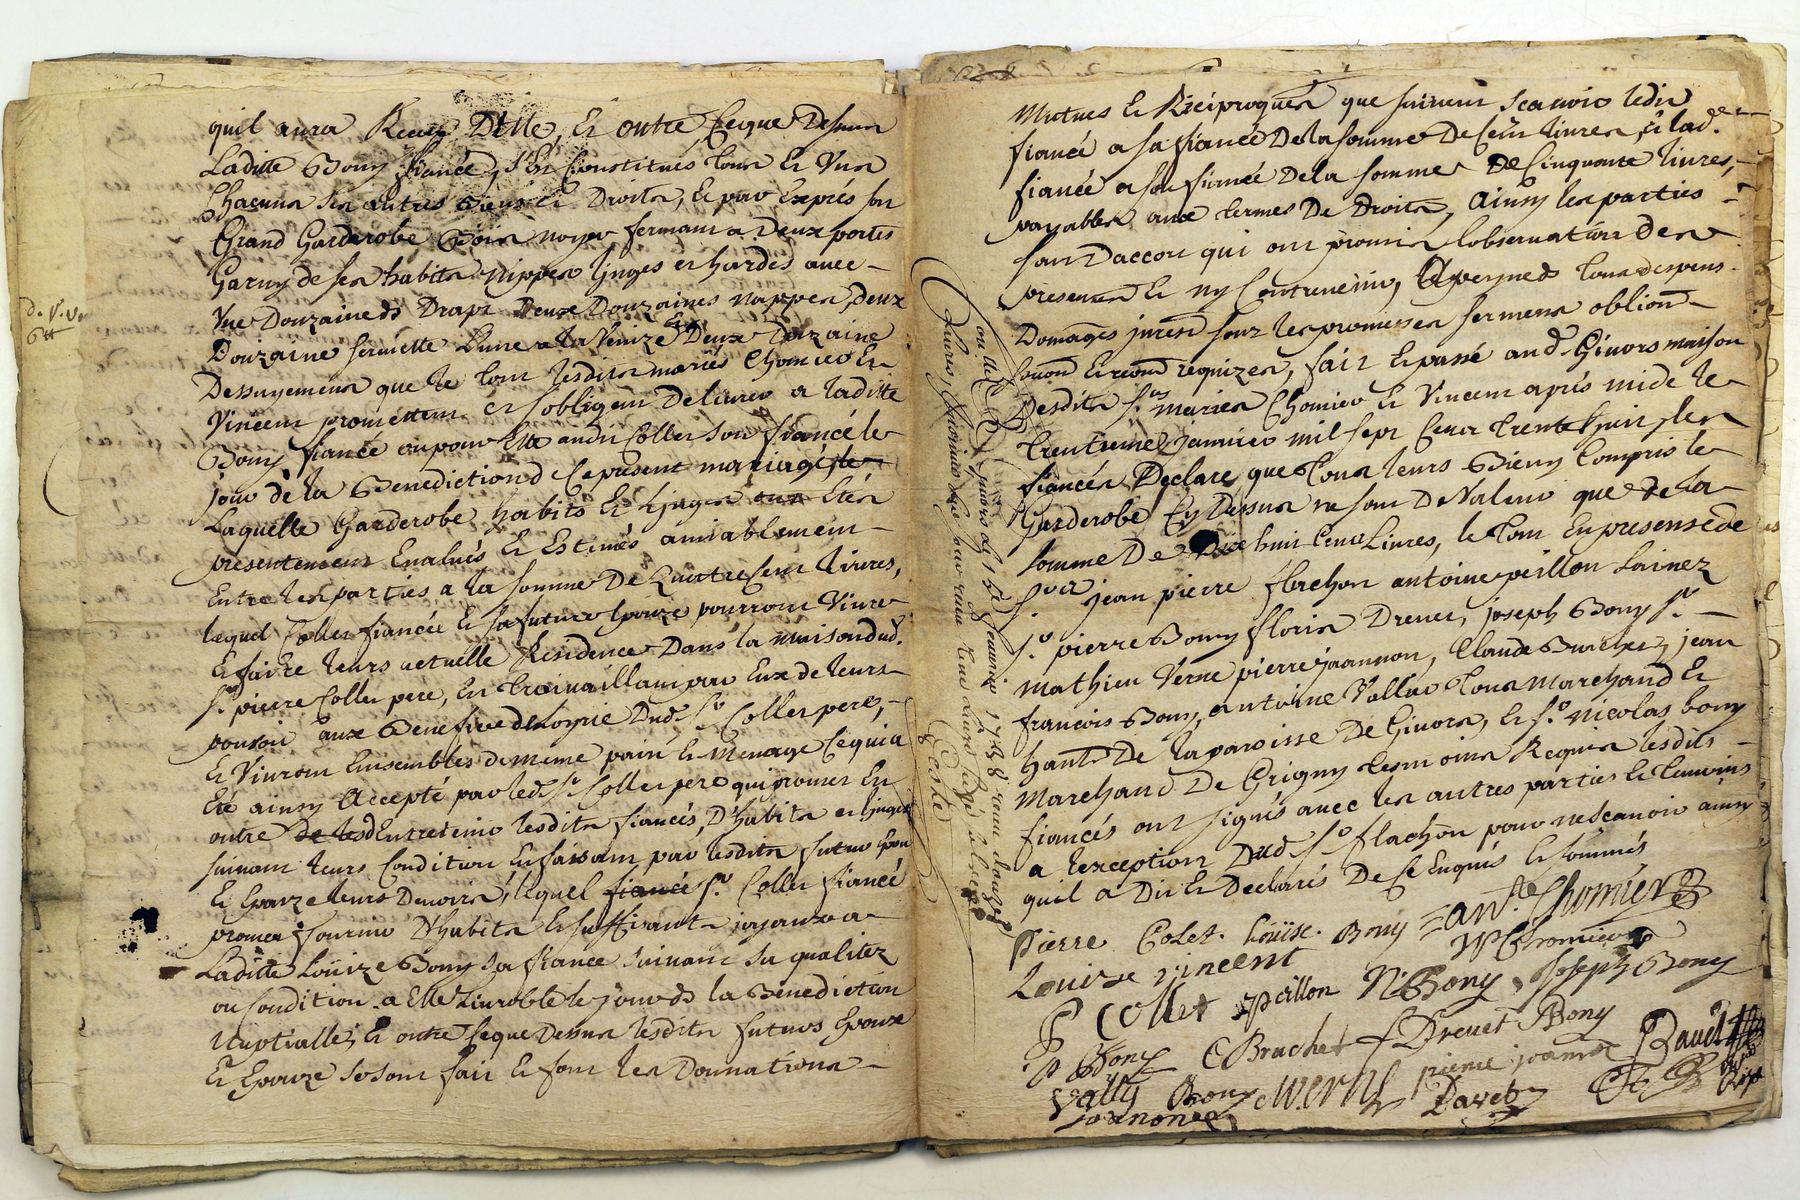 quil aura Receu Delle, Et outre Ceque Dessus
Laditte Bony fiancée, s'Est Constitués tous Et Uns
Chacuns ses autres Biens Et Droits, Et par Exprés son
Grand Garderobe Bois noyer fermant a Deux portes
Garny de ses habits nippes linges et hardes avec
Une Douzaine ds Draps Deux Douzaines nappes, deux
Douzaine serviette L'une a la Venize Et Deux Douzaine
Dessuyemens que le tout lesdits mariés Chomier Et
Vincent promettent et s'obligent Delivrer a laditte
Bony fiancée ou pour Elle audit Collet son fiancé le
jour de la Benediction d Ce present mariage, le
Laquelle Garderobe habits Et linges ont Etés
presentement Evalués Et Estimés amiablement
Entre les parties a la somme De Quatre Cent livres,
lequel Collet fiancée Et sa future Epouze pourront Vivre
Et faire leurs actuelle Residence Dans la maison dud.
Sr. pierre Collet pere, En travaillant par Eux de leurs
pouvoir aux Benefice de Loyrie Dud. Sr. Collet pere,
Et Vivront Ensembles de meme pain Et Menage Cequi a
Eté ainsy Accepté par led. Sr. Collet pere qui promet En
outre de les dEntretenir lesdits fiancés, D'habits et linges
suivant leurs Condition En faisant par lesdits futur Epoux
Et Epouze leurs Devoirs, lequel fiancée Sr. Collet fiancé
promet fournir D'habits Et suffisants joyaux a
Laditte Loüize Bony sa fiancée suivant sa qualitez
ou Condition a Elle Livrable le jour ds la Benediction
Nuptialle, Et outre Ceque Dessus lesdits futurs Epoux
Et Epouze se sont fait Et font les Donnations
d. V. v.
6tt
Mutues Et Reciproques que suivent scavoir ledit
fiancé a sa fiancée De la somme De Cent livres, Et lad.
fiancée a son fiancée De la somme De Cinquante livres,
payables aux termes De Droits, Ainsy les parties
sont Daccord qui ont promis l'observation des
presentes Et ny Contrevenir, A peyne ds tous despens
Domages jurés sous les promesses serment obliont
soumn Et renon requizes, fait Et passé aud. Givors maison
Desdits Srs mariés Chomier Et Vincent aprés midi le
trentieme janvier mil sept Cent trente huit, les
fiancés Declare que tous leurs Biens Compris le
Garderobe Cy Dessus ne sont De Valeur que de la
somme De Dix huit Cent Livres, le tout En presense de
Sr. jean pierre flachon antoine peillon Lainez
Sr. pierre Bony floris Drevet, joseph Bony Sr.
Mathieu Verne pierre jaannon, Claude Brachet, jean
francois Bony, antoine Vallas tous marchand Et
habts De la paroisse De Givors, Et Sr. Nicolas bony
Marchand De Grigny tesmoins Requis lesdits
fiancés ont signés avec les autres parties Et tesmoins
a lexception Dud. Sr. flachon pour ne scavoir ainsy
quil a Dit Et Declarés De Ce Enquis Et sommés
Pierre Colet. Loüise. Bony ant.e Chomier
Louise vincent JP Chomier
P Collet apeillon N. Bony Joseph Bony
P Bony C Brachet f Drevet Bony
Vally Bony M. Vernes pierre joanon
joanon Davet